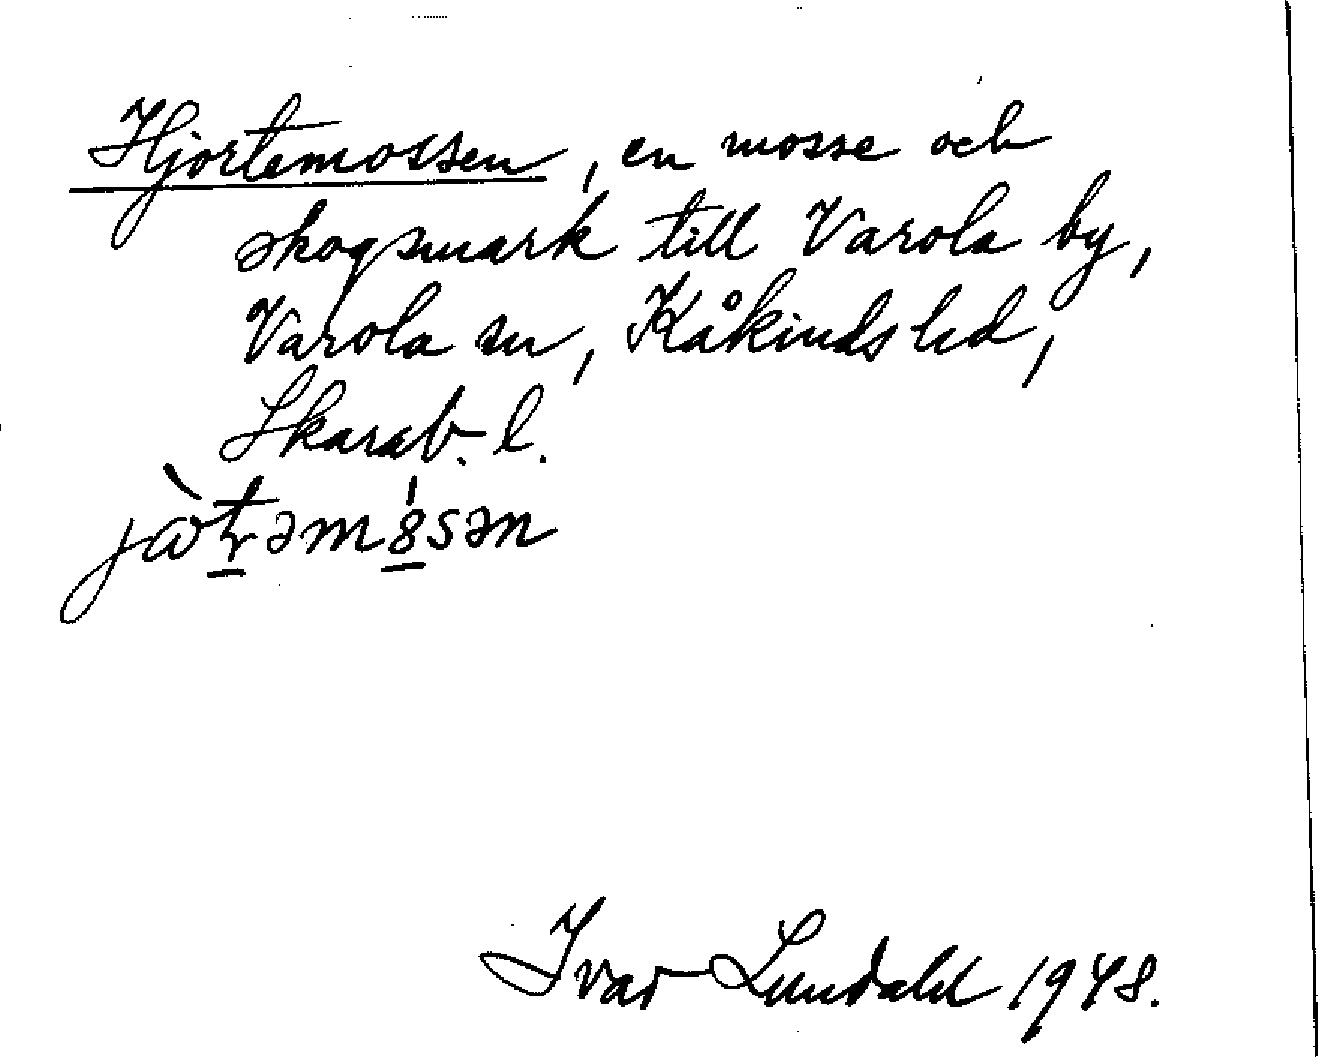 Hjortemossen, en mosse och
skogsmark till Varola by,
Varola sn, Kåkinds hd,
Skarab. l.
Ivar Lundahl 1948.